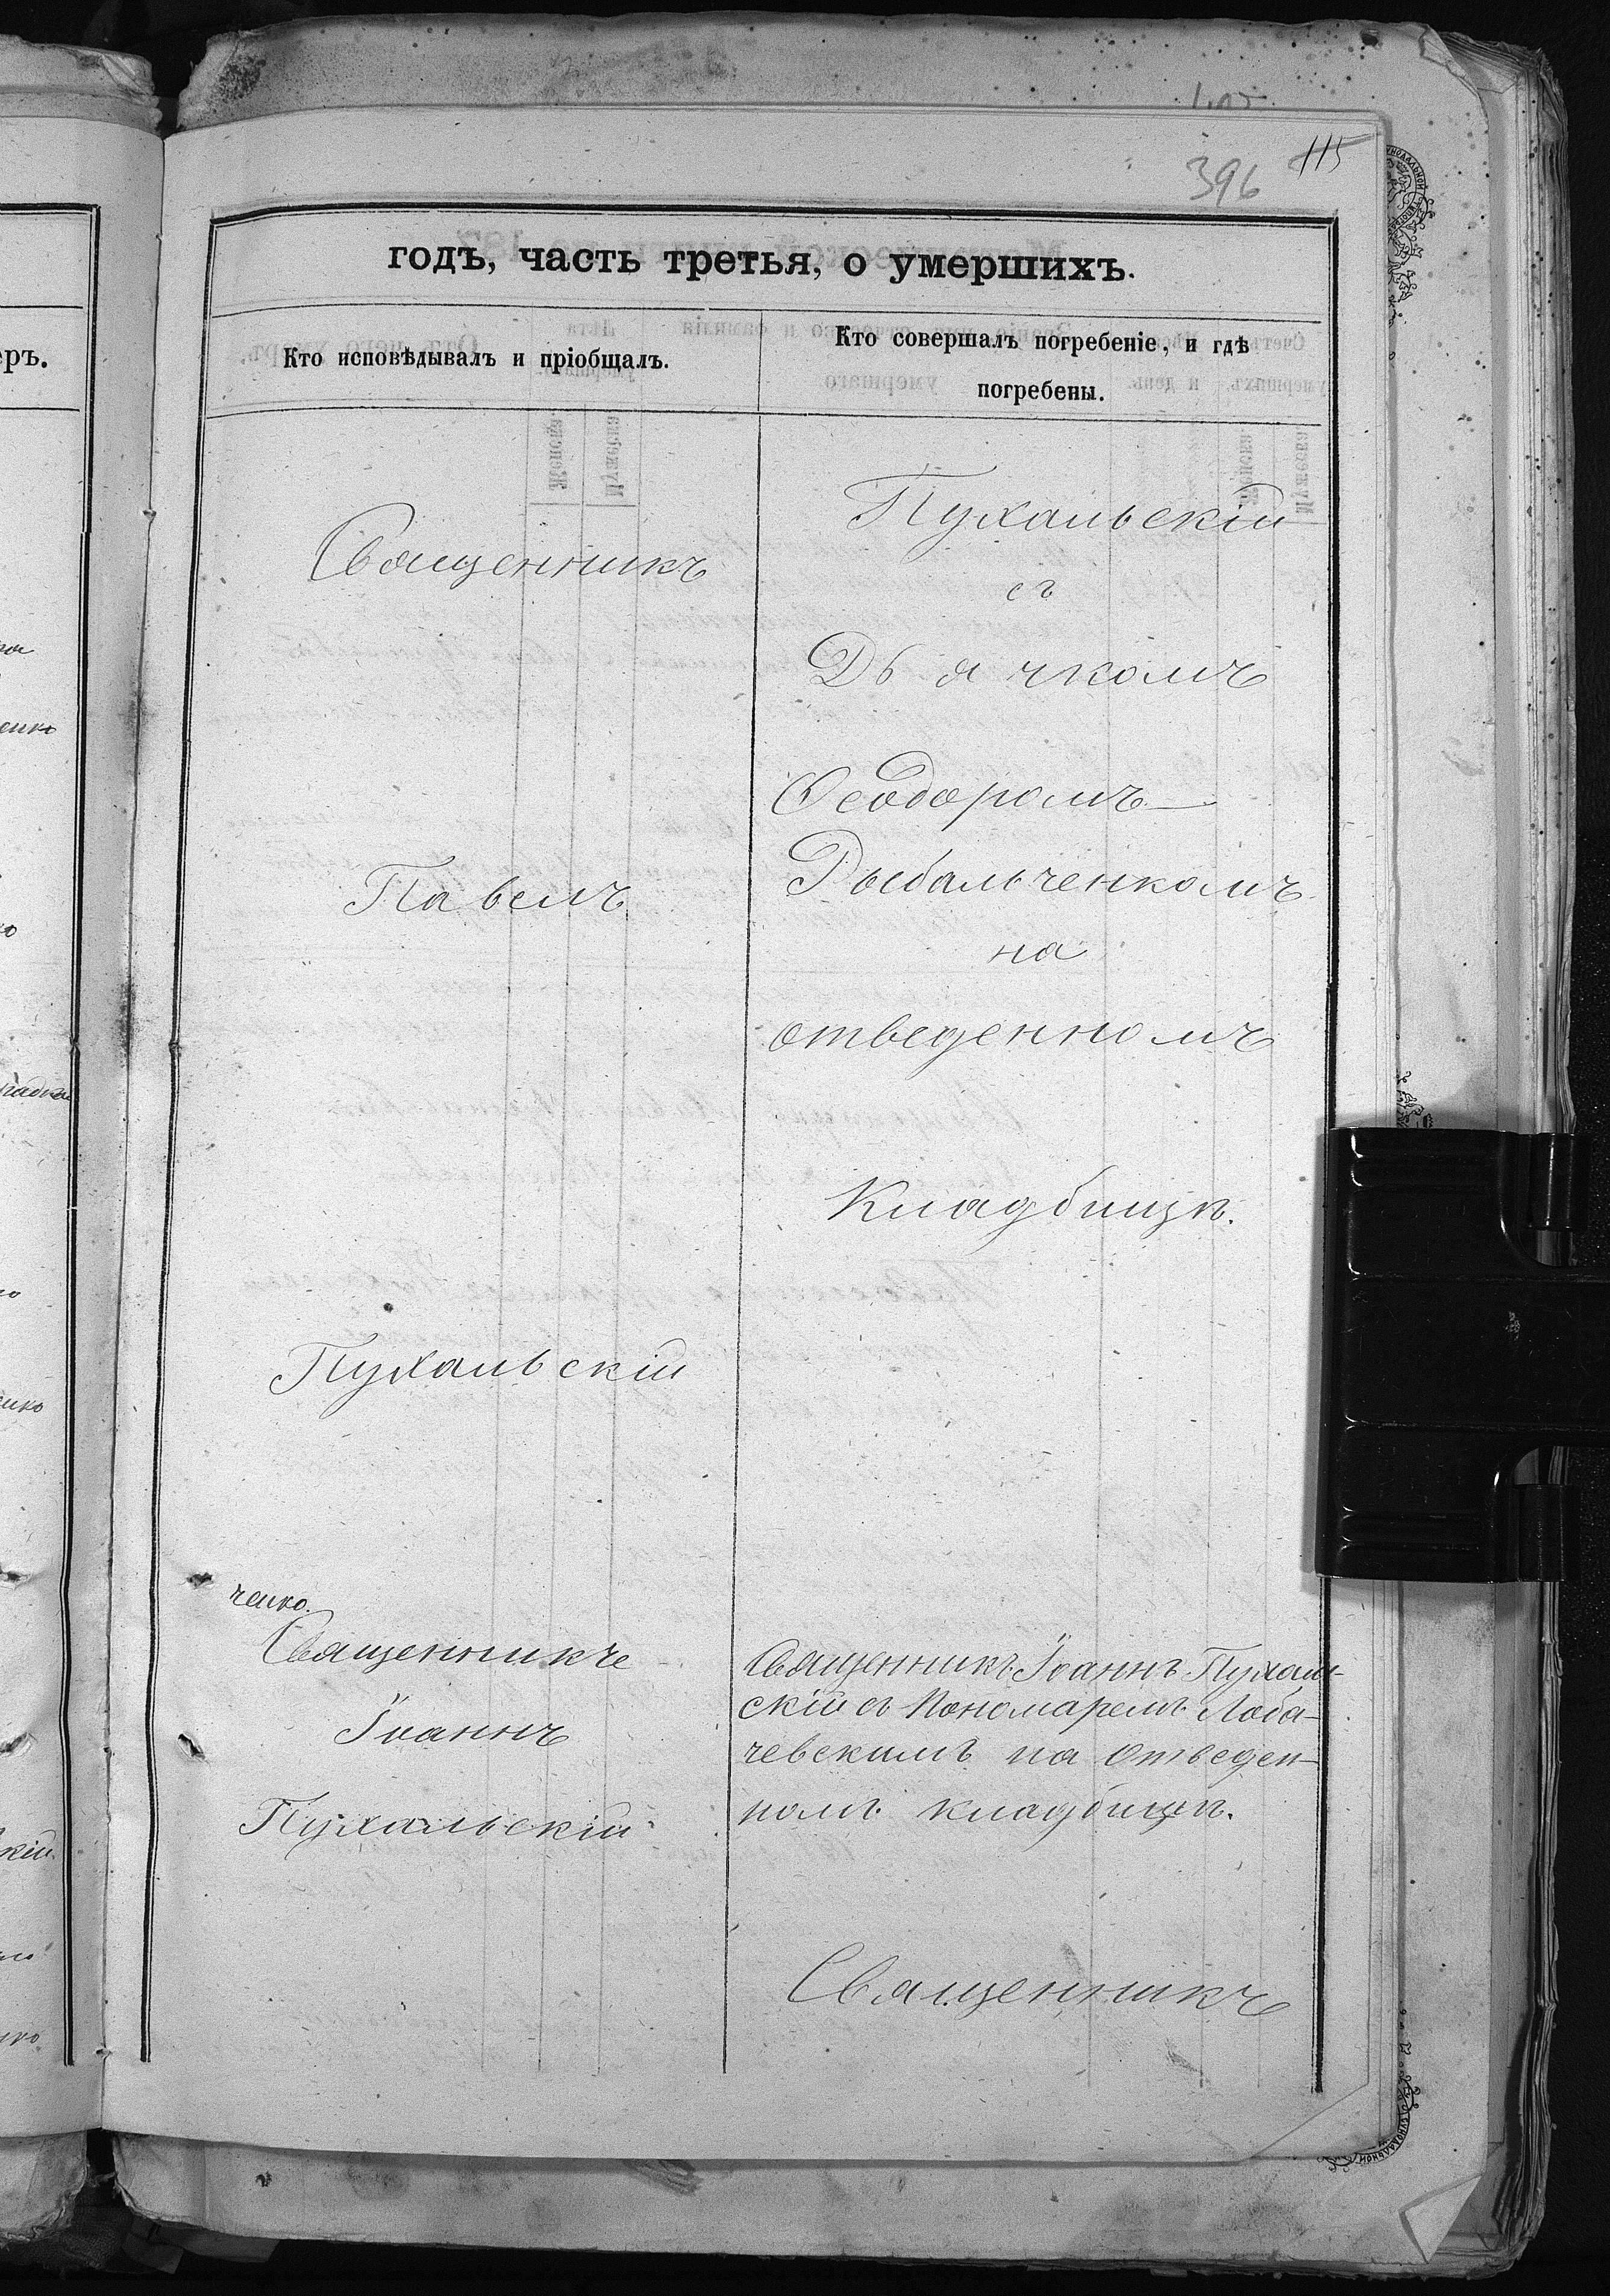 396 115
годъ, часть третья, о умершихъ.
Кто исповѣдывалъ и пріобщалъ.
Кто совершалъ погребеніе, и гдѣ
погребены.
Священникъ
Павелъ
Пухальскій
ченко.
Священникъ
Іоаннъ
Пухальскій
Пухальскій
съ
Дьячкомъ
Ѳеодоромъ
Рыбальченкомъ
на
отведенномъ
Кладбищѣ.
Священникъ Іоаннъ Пухаль-
скій съ Пономаремъ Лоба-
чевскимъ на отведен-
номъ кладбищѣ.
Священникъ